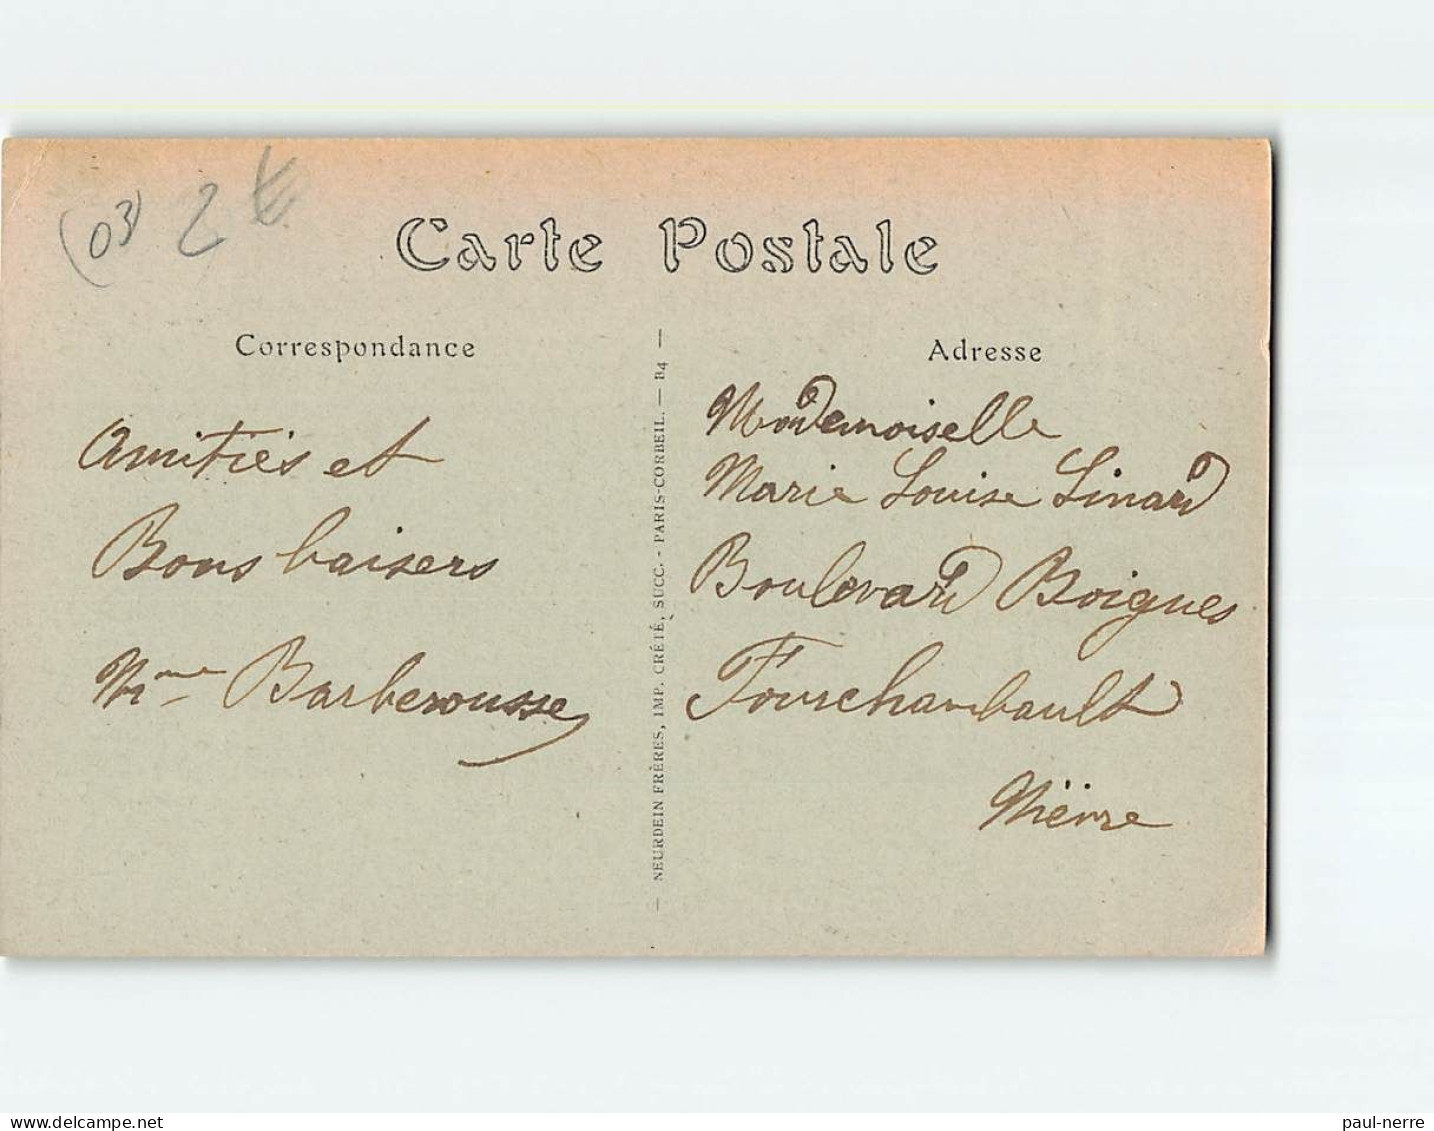 (03) 2 €
Carte Postale
Correspondance
Amitiés et
Bons baisers
Mme Barberousse
— NEURDEIN FRÈRES, IMP. CRÉTÉ, SUCC. - PARIS-CORBEIL. — B4 —
Adresse
Mademoiselle
Marie Louise Linard
Boulevard Boigues
Fourchambault
Nièvre
www.delcampe.net
paul-nerre